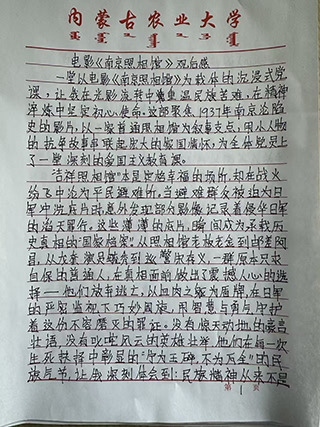 内蒙古农业大学
电影《南京照相馆》观后感
一堂以电影《南京照相馆》为载体的沉浸式党
课，让我在光影流转中重温民族苦难，在精神
淬炼中坚定初心使命。这部聚焦1937年南京沦陷
史的影片，以一家吉祥照相馆为叙事支点，用小人物
的抗争故事串联起宏大的家国情怀，为全体党员上
了一堂深刻的爱国主义教育课。
吉祥照相馆"本是定格幸福的场所，却在战火
纷飞中沦为平民避难所。当避难群众被迫为日
军冲洗底片时，意外发现部分影像记录着侵华日军
的滔天罪行。这些薄薄的底片，瞬间成为承载历史
真相的"国家档案"。从照相馆老板老金到邮差阿
昌，从龙套演员毓秀到巡警宋存义，一群原本只求
自保的普通人，在真相面前做出了震撼人心的选
择——他们放弃逃亡，以血肉之躯为盾牌，在日军
的严密监视下巧妙周旋，用智慧与勇气守护
着这份不容磨灭的罪证。没有惊天动地的豪言
壮语，没有叱咤风云的英雄壮举，他们在每一次
生死抉择中彰显的"宁为玉碎，不为瓦全"的民
族气节，让我深刻体会到：民族精神从来不是
第1页